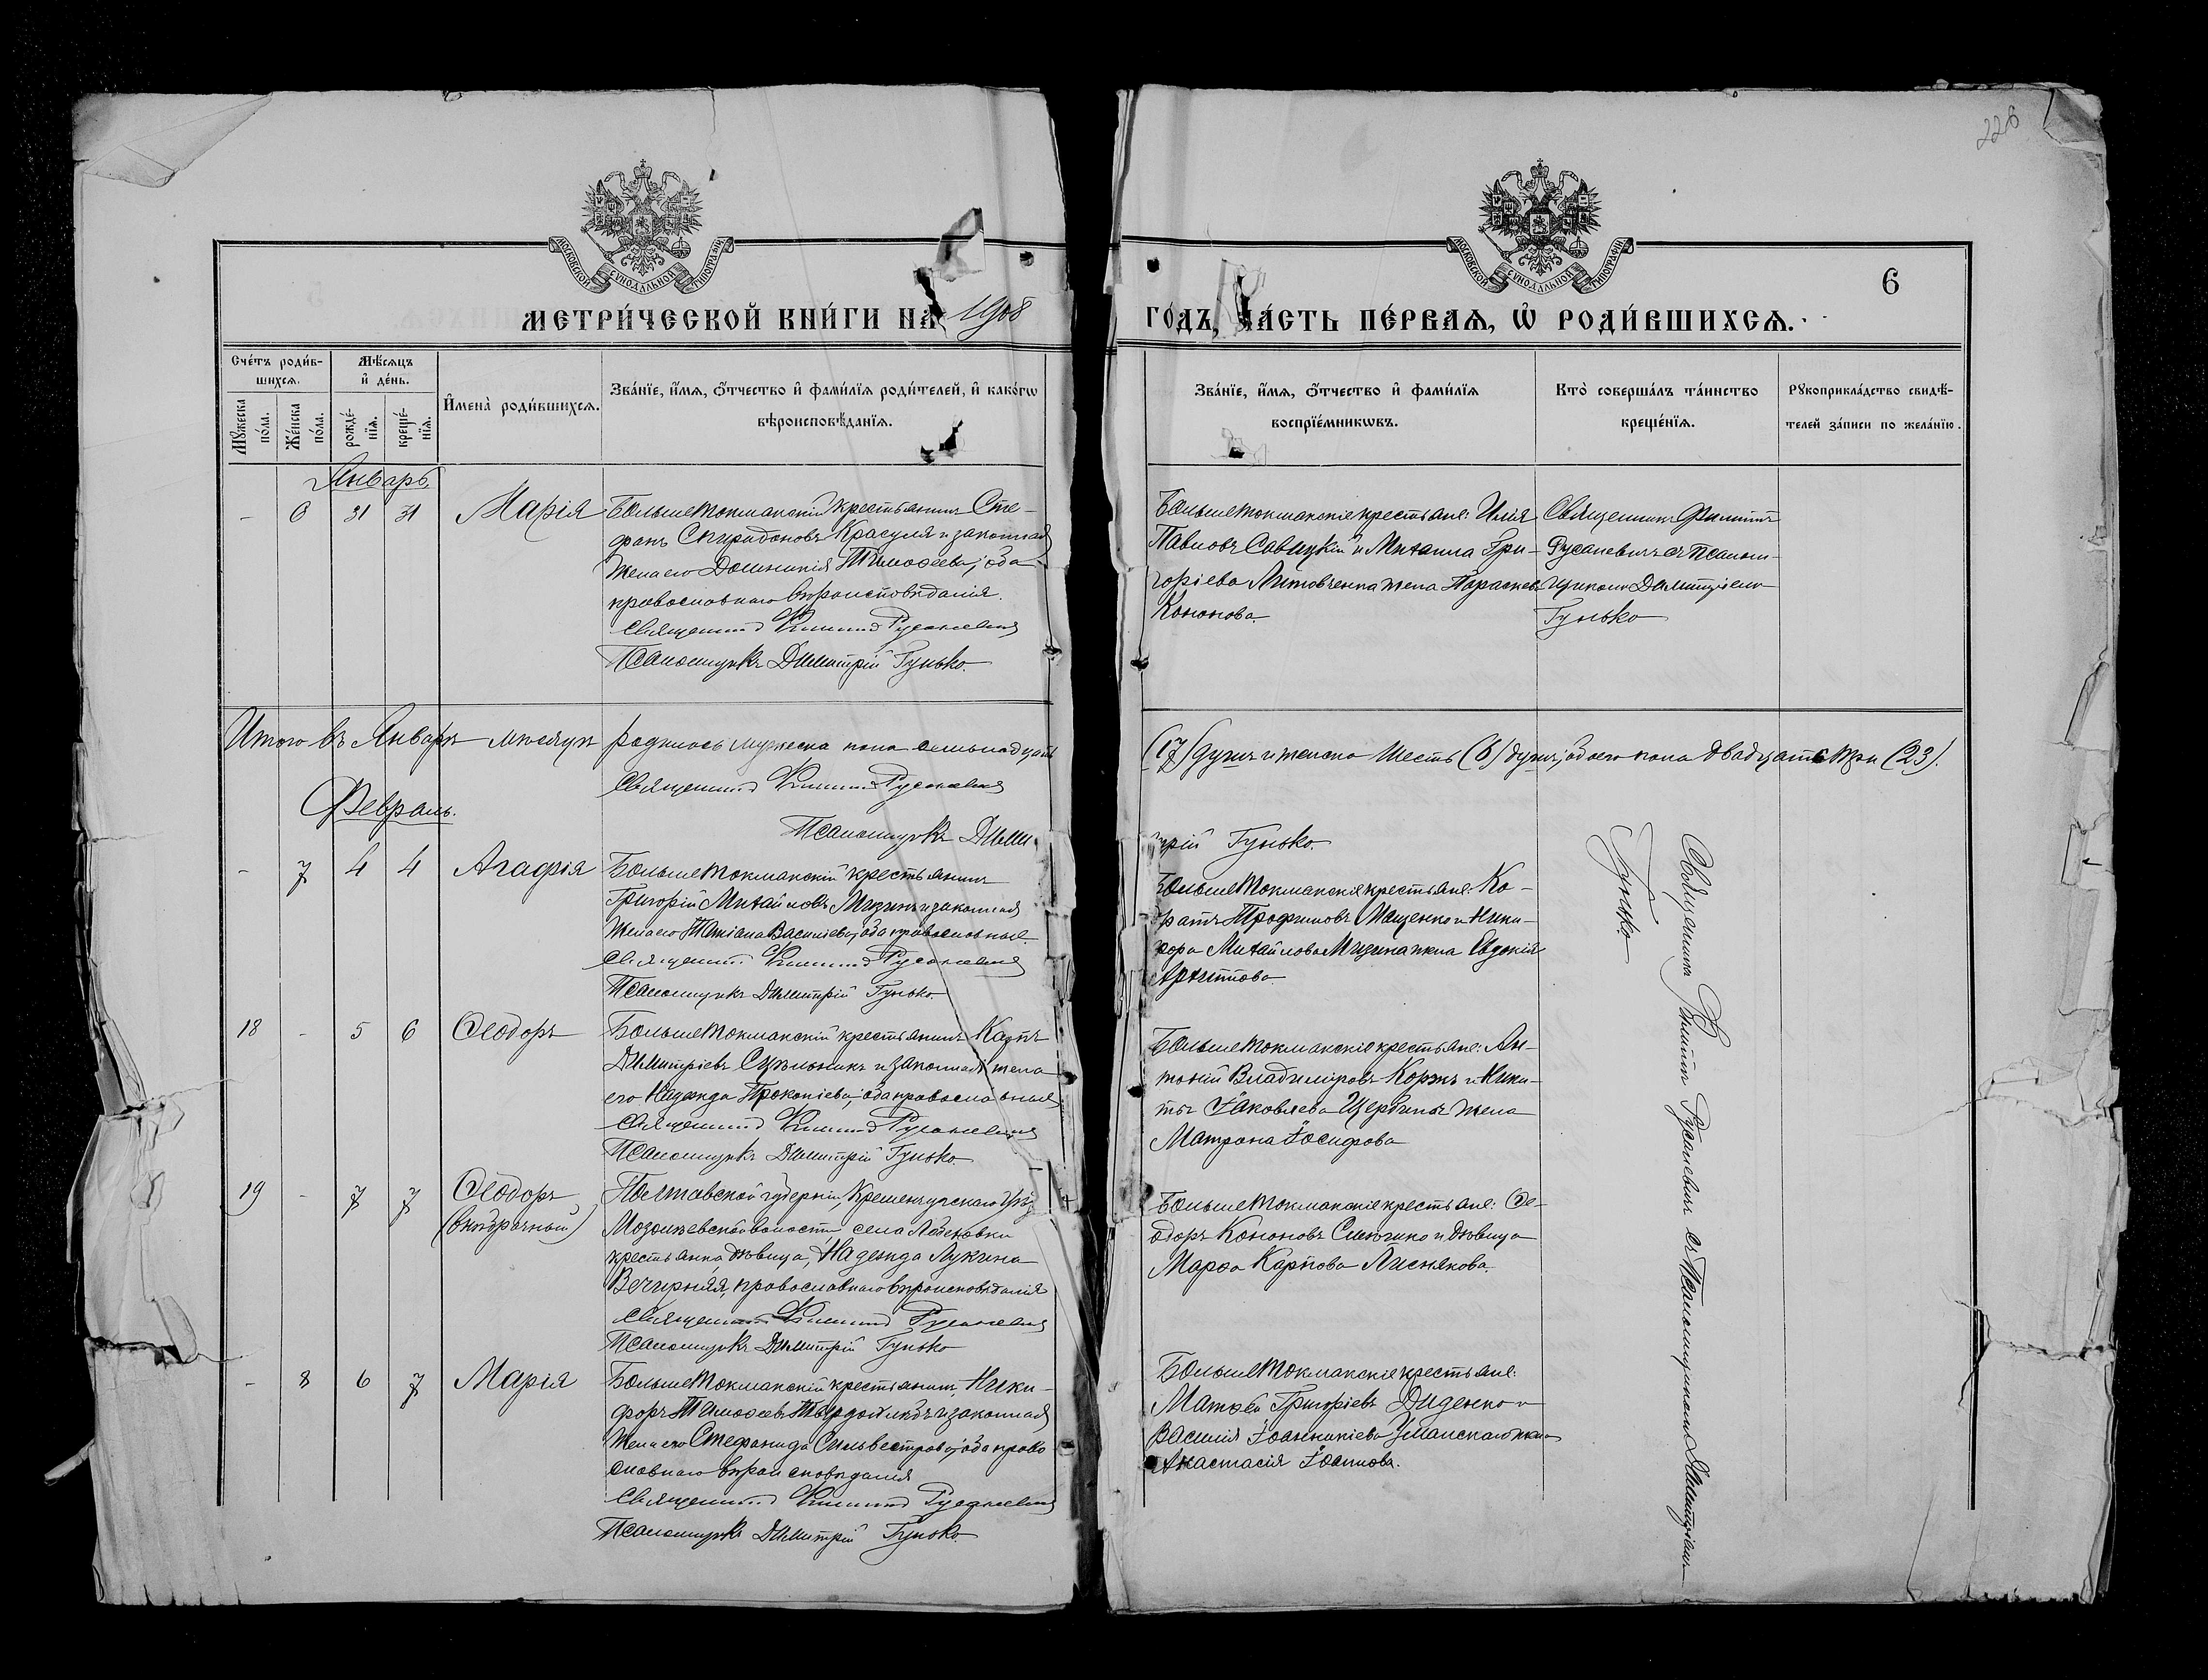 226
МОСКОВСКОЙ СУНОДАЛЬНОЙ ТИПОГРАФІИ
МОСКОВСКОЙ СУНОДАЛЬНОЙ ТИПОГРАФІИ
6
МЕТРИ́ЧЕСКОЙ КНИ́ГИ НА 1908
ГО́ДЪ, ЧА́СТЬ ПЕ́РВАЯ, Ѡ҆ РОДИ́ВШИХСЯ.
Сче́тъ роди́в-
шихся.
Мѣ́сяцъ
и҆ де́нь.
Мꙋ́жеска по́ла.
Же́нска по́ла.
рожде́-
нїя.
креще́-
нїя.
И҆мена̀ роди́вшихся.
Зва́нїе, и҆́мя, ѻ҆́тчество и҆ фами́лїя роди́телей, и҆ како́гѡ
вѣроисповѣ́данїя.
Зва́нїе, и҆́мя, ѻ҆́тчество и҆ фами́лїя
воспрїе́мникѡвъ.
Кто̀ соверша́лъ та́инство
креще́нїя.
Рꙋкоприкла́дство свидѣ́-
телей за́писи по жела́нїю.
Январь.
- 6 31 31 Марія
Больше Токмакскій крестьянинъ Сте-
фанъ Спиридоновъ Красуля и законная
жена его Домникія Тимоѳеева; оба
православнаго вѣроисповѣданія.
Священникъ Филиппъ Русаневичъ
Псаломщикъ Димитрій Гунько.
Больше Токмакскіе крестьяне: Илія
Павловъ Савицкій и Михаила Гри-
горіева Литовченка жена Параскева
Кононова.
Священникъ Филиппъ
Русаневичъ съ псалом-
щикомъ Димитріемъ
Гунько
Итого въ Январѣ мѣсяцѣ родилось мужеска пола семьнадцать
(17) душъ и женска шесть (6) душъ, обоего пола двадцать три (23).
Священникъ Филиппъ Русаневичъ
Псаломщикъ Дими
трій Гунько.
Февраль.
- 7 4 4 Агафія
Больше Токмакскій крестьянинъ
Григорій Михайловъ Мизинъ и законная
жена его Татіана Василіева; оба православные.
Священникъ Филиппъ Русаневичъ
Псаломщикъ Димитрій Гунько.
Больше Токмакскіе крестьяне: Ко-
дратъ Трофимовъ Мащенко и Ники-
фора Михайлова Мизина жена Евдокія
Архиппова.
18 - 5 6 Ѳеодоръ
Больше Токмакскій крестьянинъ Карпъ
Димитріевъ и законная жена
его Надежда Прокопіева; оба православные
Священникъ Филиппъ Русаневичъ
Псаломщикъ Димитрій Гунько.
Больше Токмакскіе крестьяне: Ан-
тоній Владиміровъ Коржъ и Ники-
ты Іаковлева Щербины жена
Матрона Іосифова
19 - 7 7 Ѳеодоръ
(внѣбрачный)
Полтавской губерніи, Кременчугскаго уѣзда
волости села
крестьянка дѣвица, Надежда Лукина
Вечирняя, православнаго вѣроисповѣданія
Священникъ Филиппъ Русаневичъ
Псаломщикъ Димитрій Гунько
Больше Токмакскіе крестьяне: Ѳе-
одоръ Кононовъ и дѣвица
Марѳа Карпова Лиснякова.
- 8 6 7 Марія
Больше Токмакскій крестьянинъ Ники-
форъ Тимоѳеевъ и законная
жена его Стефанида Сильвестрова; оба право
славнаго вѣроисповѣданія
Священникъ Филиппъ Русаневичъ
Псаломщикъ Димитрій Гунько.
Больше Токмакскіе крестьяне:
Матѳей Григоріевъ Диденко и
Василія Іоанникіева Уманскаго жена
Анастасія Іоаннова.
Священникъ Филиппъ Русаневичъ съ Псаломщикомъ Димитріемъ
Гунько